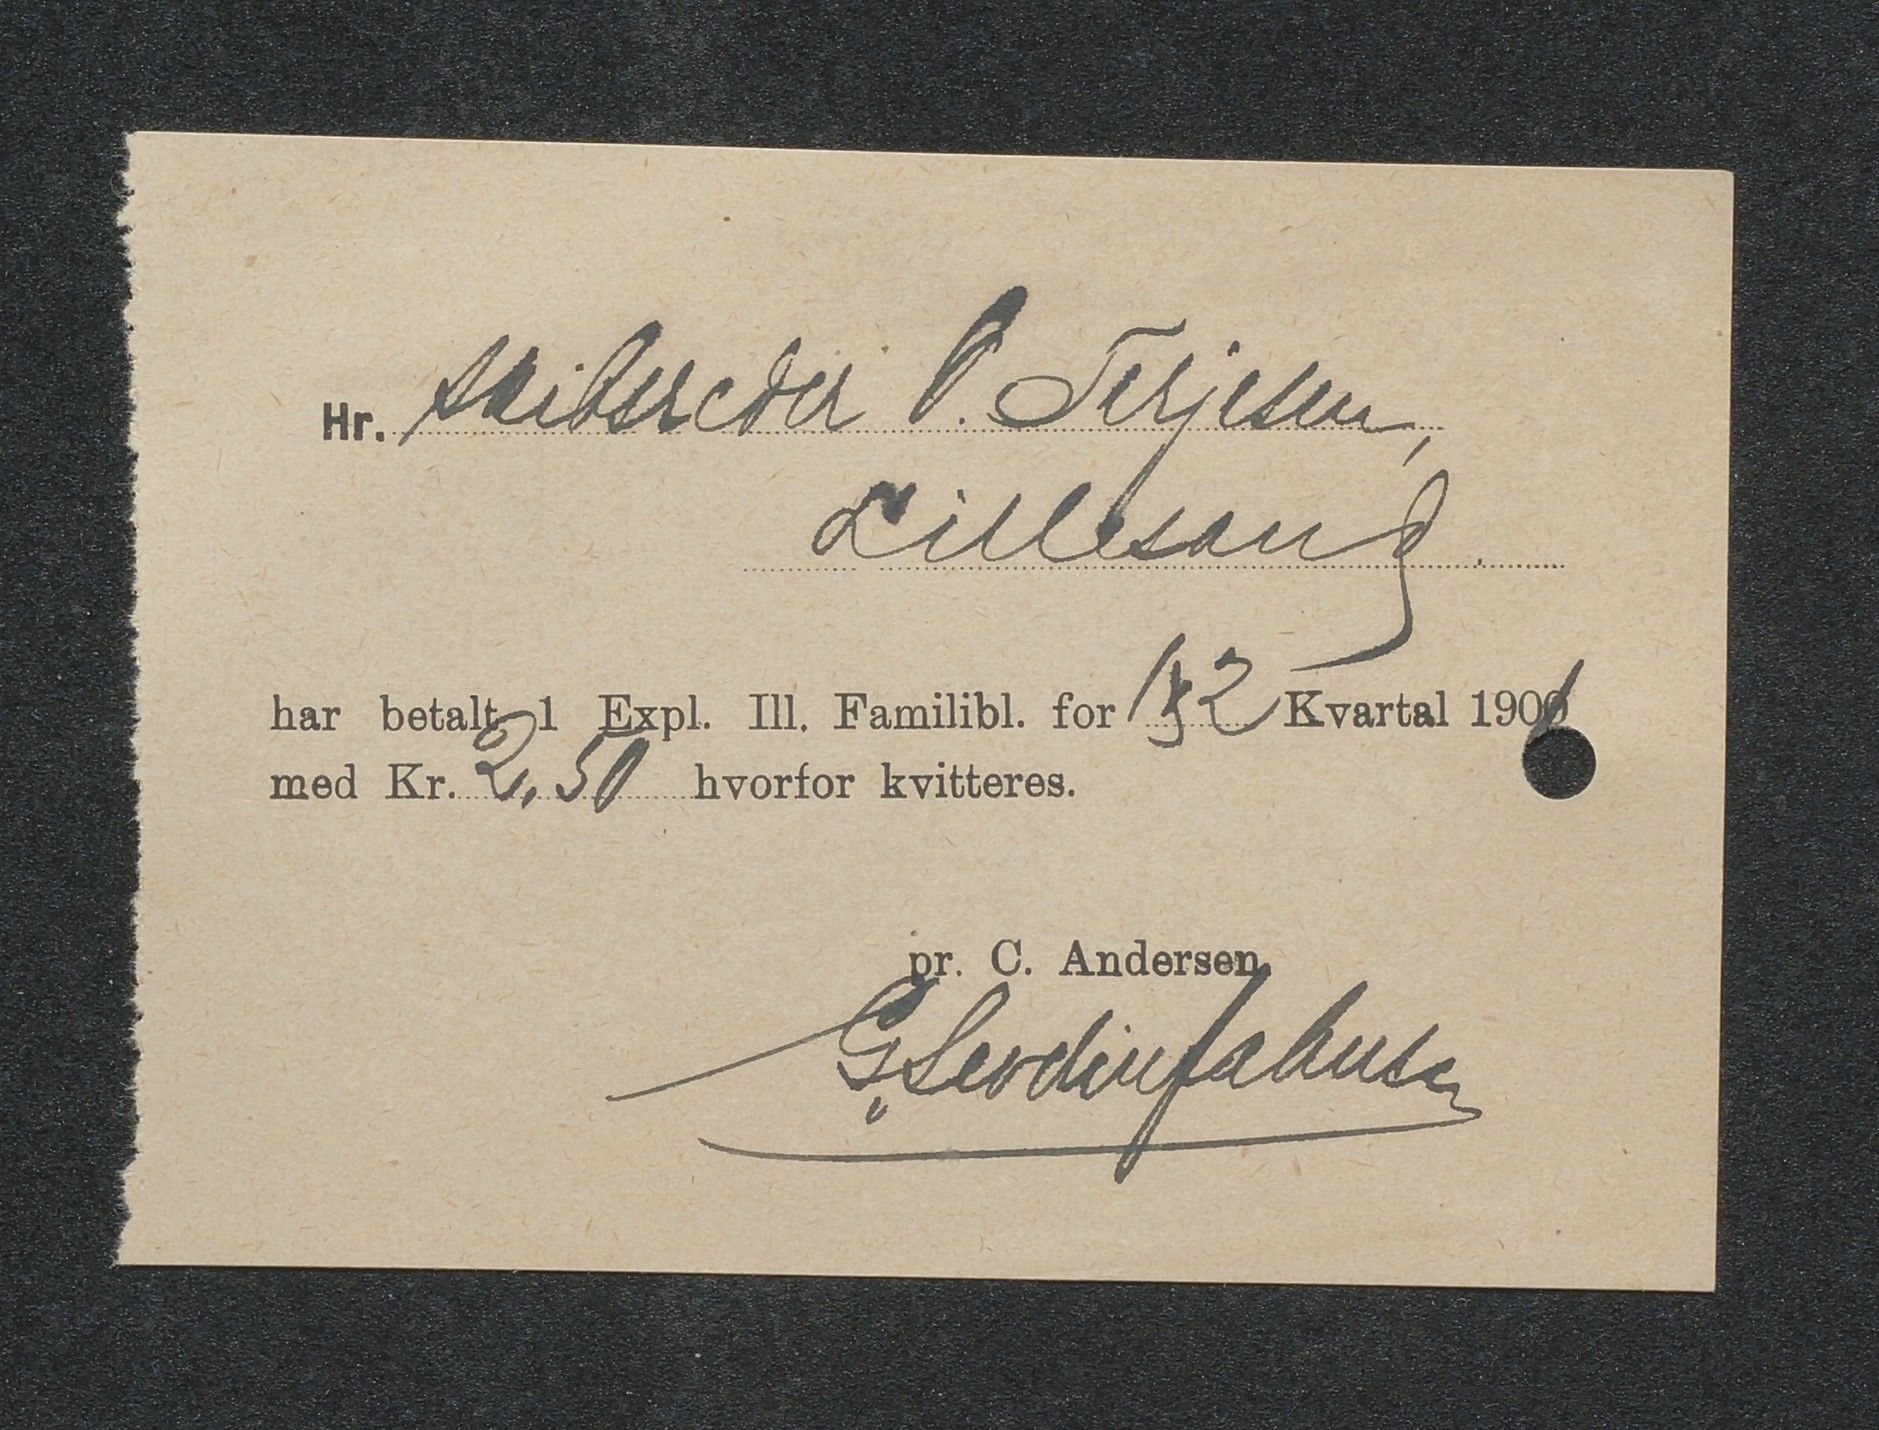 Hr. Skibsreder O. Terjesen,
Lillesand.
har betalt 1 Expl. Ill. Familibl. for 1 & 2 Kvartal 1906
med Kr. 2,50 hvorfor kvitteres.
pr. C. Andersen